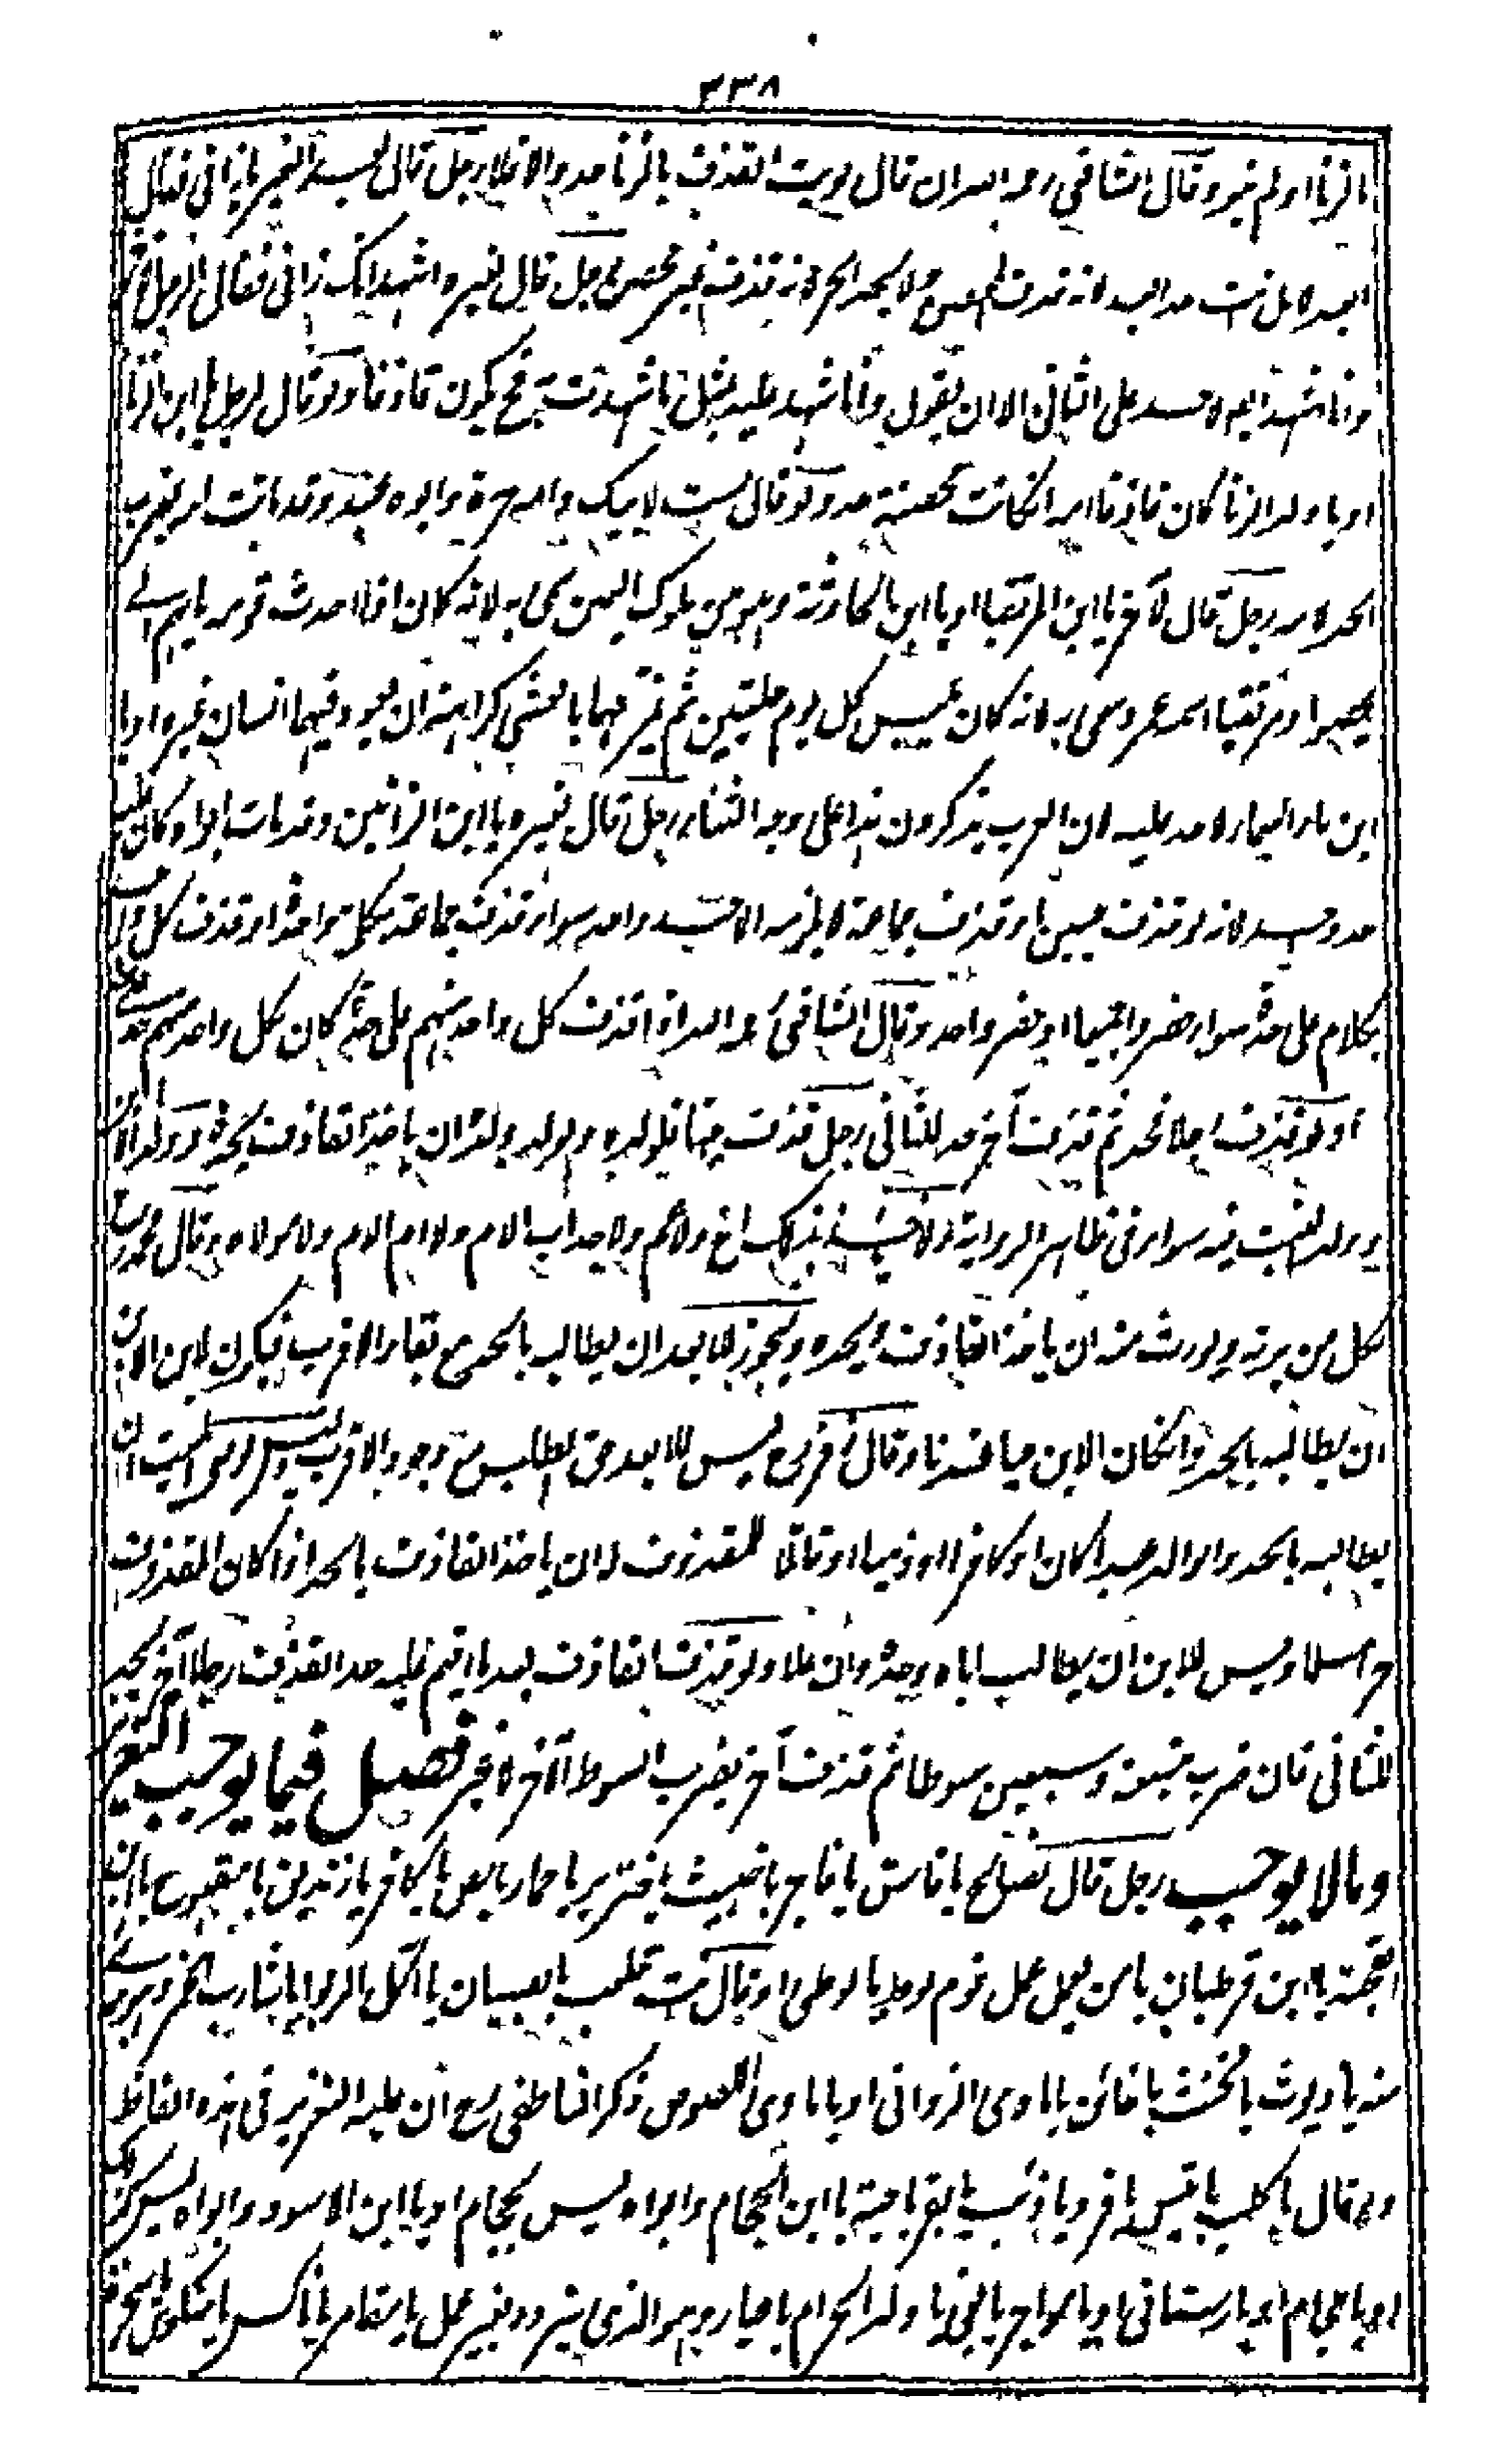 ٣٣٨
الزنا او لم ينو وقال الشافعي رحمه الله ان قال نويت القذف بالزنا حد والا فلا رجل قال لعبد الغير يا زاني فقال
العبد لا بل انت حد العبد لانه قذف المحصن ولا يحد الحر لانه قذف غير محصن رجل قال لغيره اشهد انك زاني فقال الرجل الآخر
وانا اشهد ايضا لا حد على الثاني الا ان يقول وانا اشهد عليه بمثل ما شهدت به فح يكون قاذفا ولو قال لرجل يا ابن الزنا
او يا ولد الزنا كان قاذفا امه انكانت محصنة حد ولو قال لست لابيك وامه حرة وابوه عبد وقد ماتت امه يضرب
الحد لامه رجل قال لآخر يا ابن المزيقيا او يا ابن الحارثة وهو من ملوك اليمن سمي به لانه كان اذا احدث قومه
ومزيقيا اسمه عمرو سمي به لانه كان يلبس كل يوم حلتين ثم يمزقهما بالعشي كراهة ان يعود فيهما انسان غيره او يا
ابن ماء السماء لا حد عليه لان العرب يذكرون هذا على وجه الثناء رجل قال لغيره يا ابن الزانيين وقد مات ابواه كان عليه
حد واحد لانه لو قذف حيين او قذف جماعة لا يلزمه الا حد واحد سواء قذف جماعة بكلمة واحدة او قذف كل واحد
بكلام على حدة سواء حضروا جميعا او حضر واحد وقال الشافعي رحمه الله اذا قذف كل واحد منهم على حدة كان لكل واحد منهم حد على
ولو قذف رجلا فحد ثم قذف آخر حد للثاني رجل قذف ميتا فلولده ولولد ولده ان ياخذ القاذف بالحد وولد الابن
وولد البنت فيه سواء في ظاهر الرواية ولا يؤخذ بذلك اخ ولا عم ولا جد اب الام ولا ام الام ولا مولاه وقال محمد رح
لكل من يرثه ويورث منه ان ياخذ القاذف ويحده ويجوز للابعد ان يطالب بالحد مع بقاء الاقرب فيكون لابن الابن
ان يطالبه بالحد وانكان الابن حيا عندنا وقال زفر رح ليس للابعد حق الطلب مع وجود الاقرب وليس لمولى الميت ان
يطالبه بالحد والوالد عبدا كان او كافرا او ذميا او قاتلا للمقذوف له ان ياخذ القاذف بالحد اذا كان المقذوف
حرا مسلما وليس للابن ان يطالب اباه وجده وان علا ولو قذف القاذف بعد ما اقيم عليه حد القذف رجلا آخر يحد
للثاني فان ضرب تسعة وسبعين سوطا ثم قذف آخر يضرب السوط الآخر لا غير فصل فيما يوجب التعزير
وما لا يوجب رجل قال لصالح يا فاسق يا فاجر يا خبيث يا خنزير يا حمار يا لص يا كافر يا زنديق يا مقبوح يا ابن
القحبة يا ابن قرطبان يا من يعمل عمل قوم لوط يا لوطي او قال انت تلعب بالصبيان يا آكل الربوا يا شارب الخمر وهو برئ
منه يا ديوث يا مخنث يا خائن يا ماوى الزواني او يا ماوى اللصوص ذكر الناطفي رح ان عليه التعزير في هذه الفاظ
ولو قال يا كلب يا تيس يا قرد يا ذئب يا بقر يا حية يا ابن الحجام وابواه ليس بحجام او يا ابن الاسود وابواه ليس كذلك
او يا حجام او يا رستاقي او يا مواجر يا بغي يا ولد الحرام يا عيار وهو الذي يتردد بغير عمل يا مقامر يا ناكس يا منكوس يا سخرة